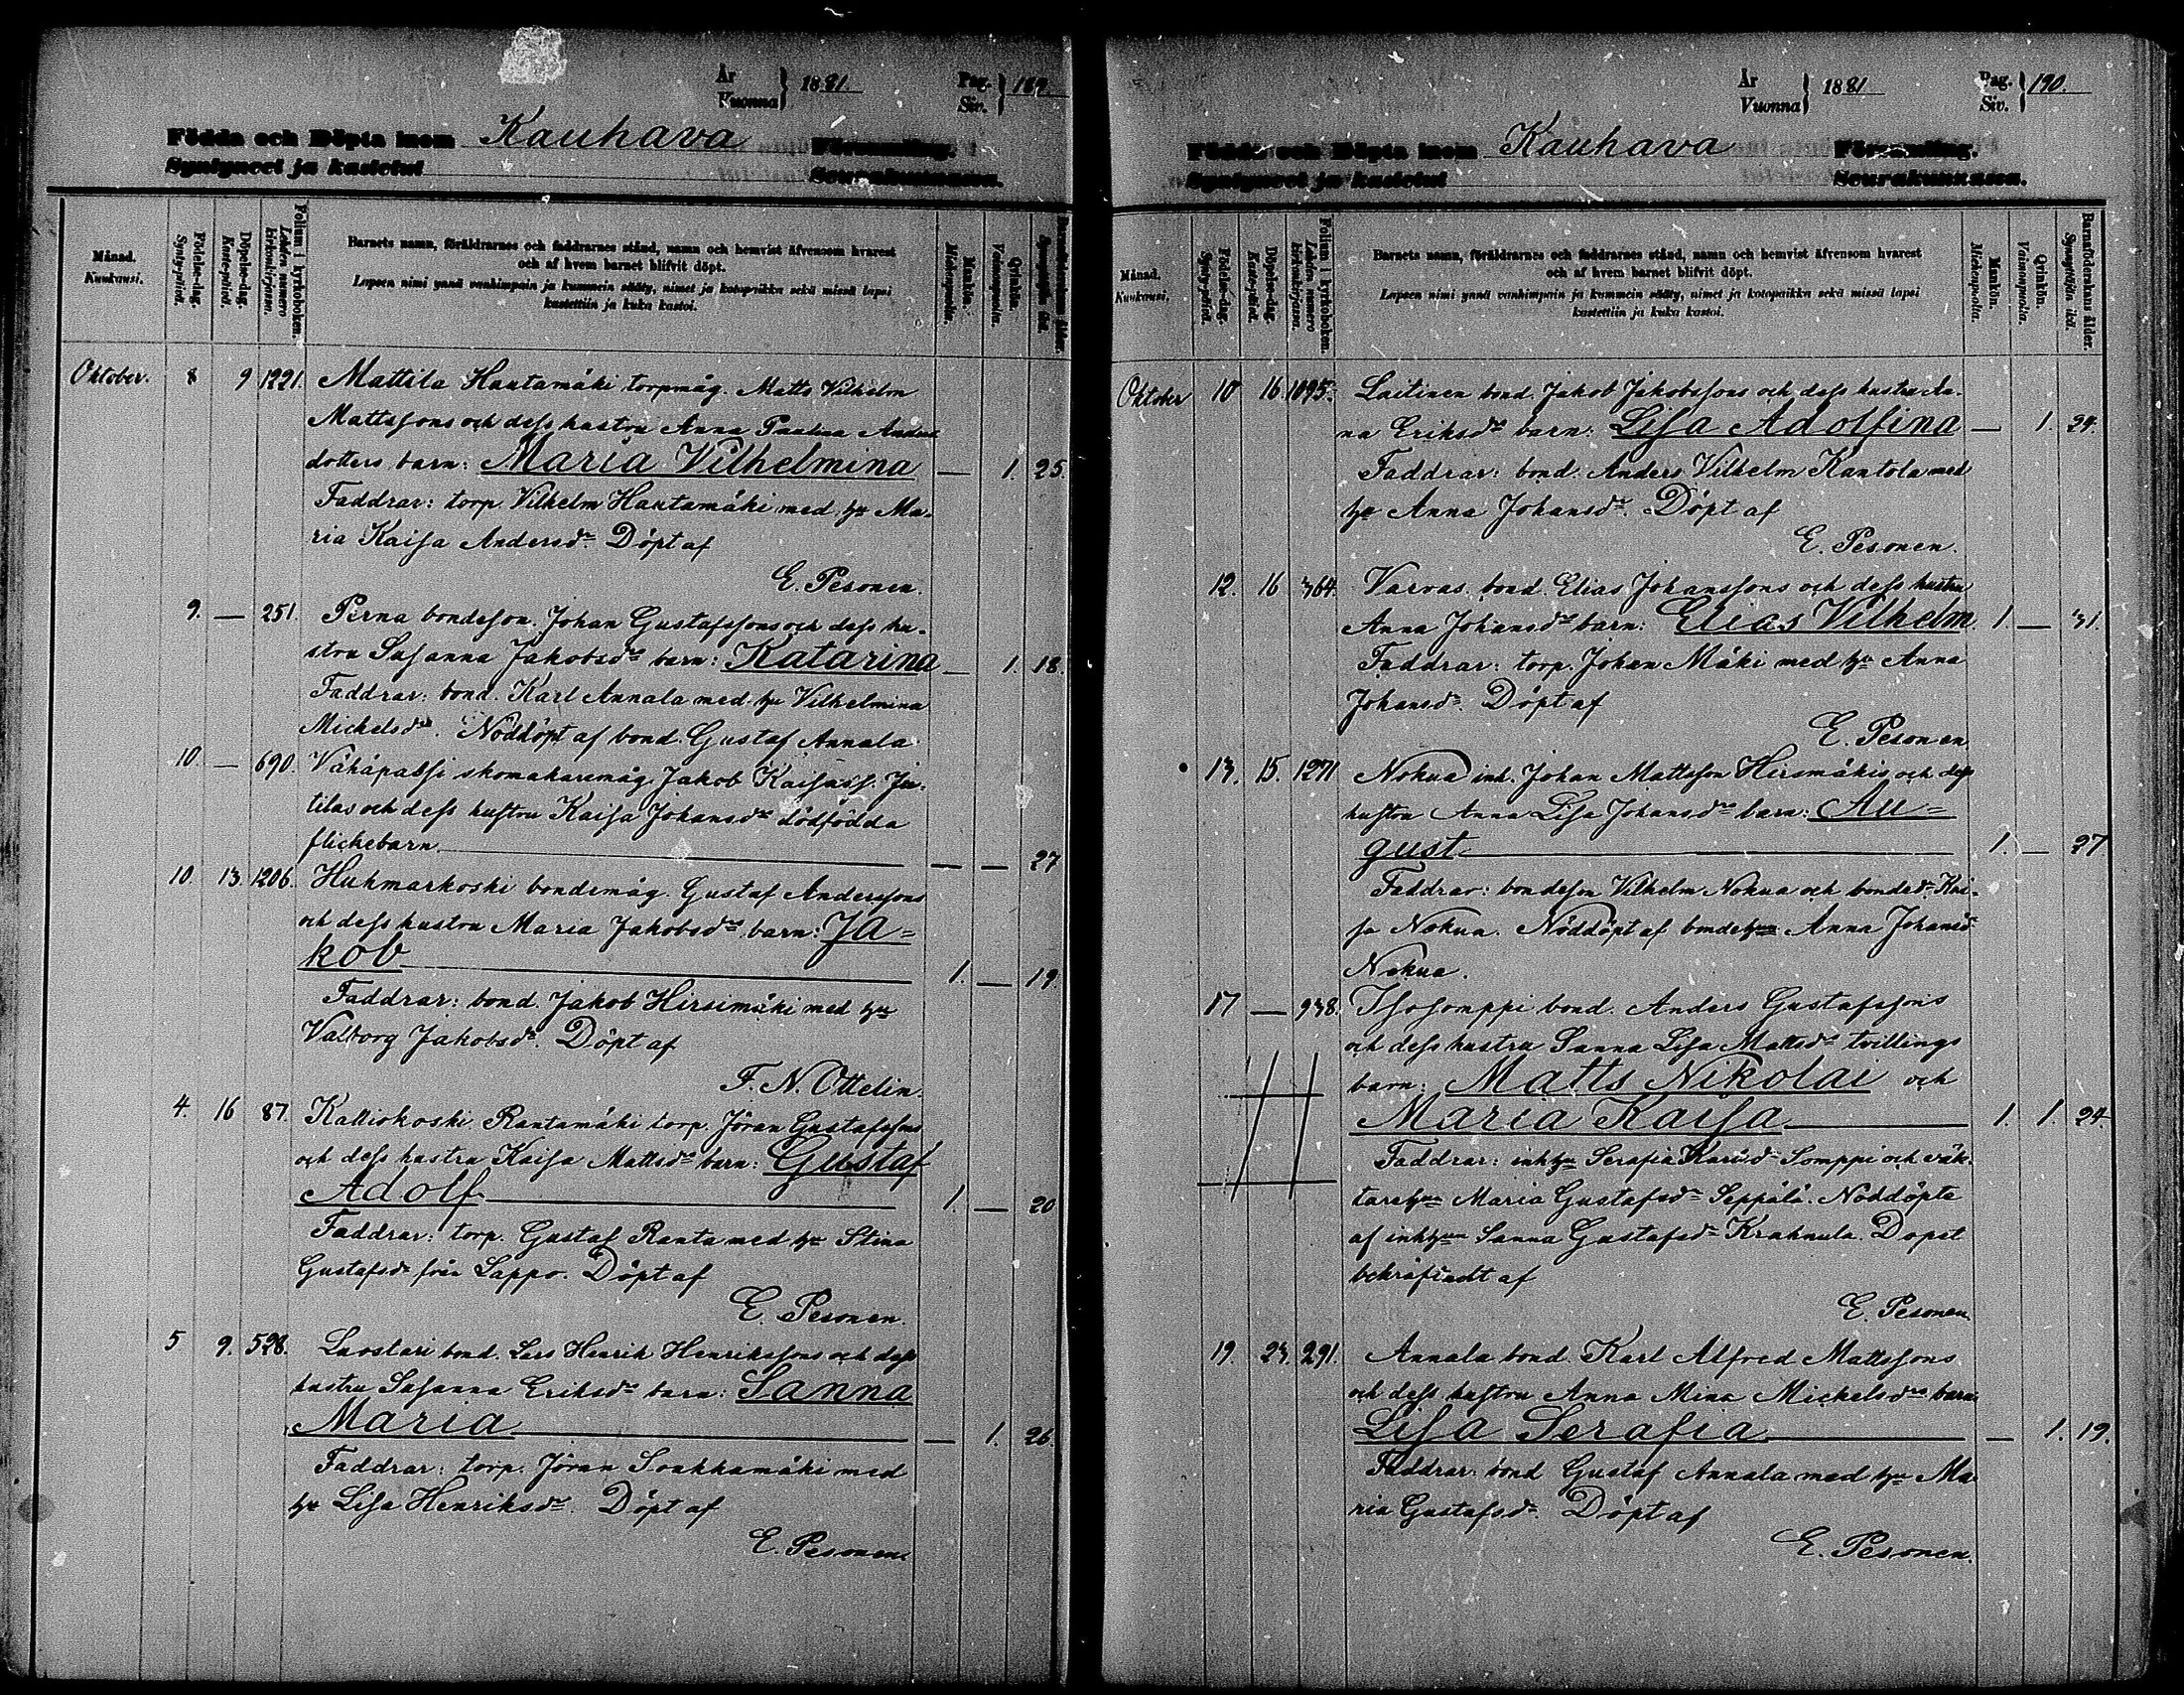 År
Vuonna } 1881.
Pag.
Siv. } 189.
Födda och Döpta inom Kauhava Församling.
Syntyneet ja kastetut Seurakunnassa.
Månad.
Kuukausi.
Födelse-dag.
Synty-päivä.
Döpelse-dag.
Kaste-päivä.
Folium i kyrkoboken.
Lehden numero kirkonkirjassa.
Barnets namn, föräldrarnes och faddrarnes stånd, namn och hemvist äfvensom hvarest
och af hvem barnet blifvit döpt.
Lapsen nimi ynnä vanhimpain ja kummein sääty, nimet ja kotopaikka sekä missä lapsi
kastettiin ja kuka kastoi.
Mankön.
Miehenpuolia.
Qvinkön.
Vaimonpuolia.
Oktober. 8 9 1221. Mattila Hautamäki torpmåg. Matts Vilhelm
Mattssons och dess hustru Anna Paulina Anders
dotters barn: Maria Vilhelmina — 1. 25.
Faddrar: torp. Vilhelm Hautamäki med hu Ma-
ria Kaisa Andersdr. Döpt af
E. Pesonen.
9. — 251. Perna bondeson. Johan Gustafssons och dess hu-
stru Susanna Jakobsdrs barn: Katarina — 1. 18.
Faddrar: bond. Karl Annala med hu Vilhelmina
Michelsdr. Nöddöpt af bond. Gustaf Annala
10. — 690. Vähäpassi skomakaremåg Jakob Kaisass. Ju-
tilas och dess hustru Kaisa Johansdrs dödfödda
flickebarn — — 27
10. 13. 1206. Huhmarkoski bondemåg. Gustaf Anderssons
och dess hustru Maria Jakobsdrs barn: Ja=
kob 1. — 19.
Faddrar: bond. Jakob Hirsimäki med hu
Valborg Jakobsdr. Döpt af
F. N. Ottelin.
4. 16 87. Kalliokoski Rantamäki torp. Jöran Gustafssons
och dess hustru Kaisa Mattsdrs barn: Gustaf
Adolf 1. — 20
Faddrar: torp. Gustaf Ranta med hu Stina
Gustafsdr från Lappo. Döpt af
E. Pesonen.
5 9. 528. Luostari bond. Lars Henrik Henrikssons och dess
hustru Susanna Eriksdrs barn: Sanna
Maria — 1. 26.
Faddrar: torp. Jöran Soukkamäki med
hu Lisa Henriksdr. Döpt af
E. Pesonen.
År
Vuonna } 1881
Pag.
Siv. } 190.
Födda och Döpta inom Kauhava Församling.
Syntyneet ja kastetut Seurakunnassa.
Månad.
Kuukausi.
Födelse-dag.
Synty-päivä.
Döpelse-dag.
Kaste-päivä.
Folium i kyrkoboken.
Lehden numero kirkonkirjassa.
Barnets namn, föräldrarnes och faddrarnes stånd, namn och hemvist äfvensom hvarest
och af hvem barnet blifvit döpt.
Lapsen nimi ynnä vanhimpain ja kummein sääty, nimet ja kotopaikka sekä missä lapsi
kastettiin ja kuka kastoi.
Mankön.
Miehenpuolia.
Qvinkön.
Vaimonpuolia.
Barnaföderskans ålder.
Synnyttäjän ikä.
Oktober 10 16. 1095. Laitinen bond. Jakob Jakobssons och dess hustru An-
na Eriksdrs barn: Lisa Adolfina — 1. 24.
Faddrar: bond. Anders Vilhelm Kantola med
hu Anna Johansdr. Döpt af
E. Pesonen.
12. 16 364. Varvas bond. Elias Johanssons och dess hustru
Anna Johansdrs barn: Elias Vilhelm. 1. — 31.
Faddrar: torp. Johan Mäki med hu Anna
Johansdr. Döpt af
E. Pesonen
13. 15. 1271 Nokua inh. Johan Mattsson Hirsmäkis och dess
hustru Anna Lisa Johansdrs barn: Au=
gust 1. — 27
Faddrar: bondeson Vilhelm Nokua och bondedr Kai-
sa Nokua. Nöddöpt af bondehun Anna Johansdr
Nokua.
17 — 938. Isosomppi bond. Anders Gustafssons
och dess hustru Sanna Lisa Mattsdrs tvillings
barn: Matts Nikolai och
Maria Kaisa 1. 1. 24.
Faddrar: inhhu Serafia Karlsdr Somppi och väk-
tarehun Maria Gustafsdr Seppälä. Nöddöpte
af inhhun Sanna Gustafsdr Krahnula. Dopet
bekräftadt af
E. Pesonen.
19. 23. 291. Annala bond. Karl Alfred Mattssons
och dess hustru Anna Mina Michelsdrs barn
Lisa Serafia — 1. 19.
Faddrar: bond Gustaf Annala med hu Ma-
ria Gustafsdr. Döpt af
E. Pesonen.